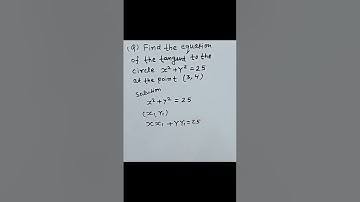 (Q) Find the equation
of the tangent to the
circle x² + y² = 25
at the point (3, 4)
Solution
x² + y² = 25
(x₁ y₁)
x x₁ + y y₁ = 25